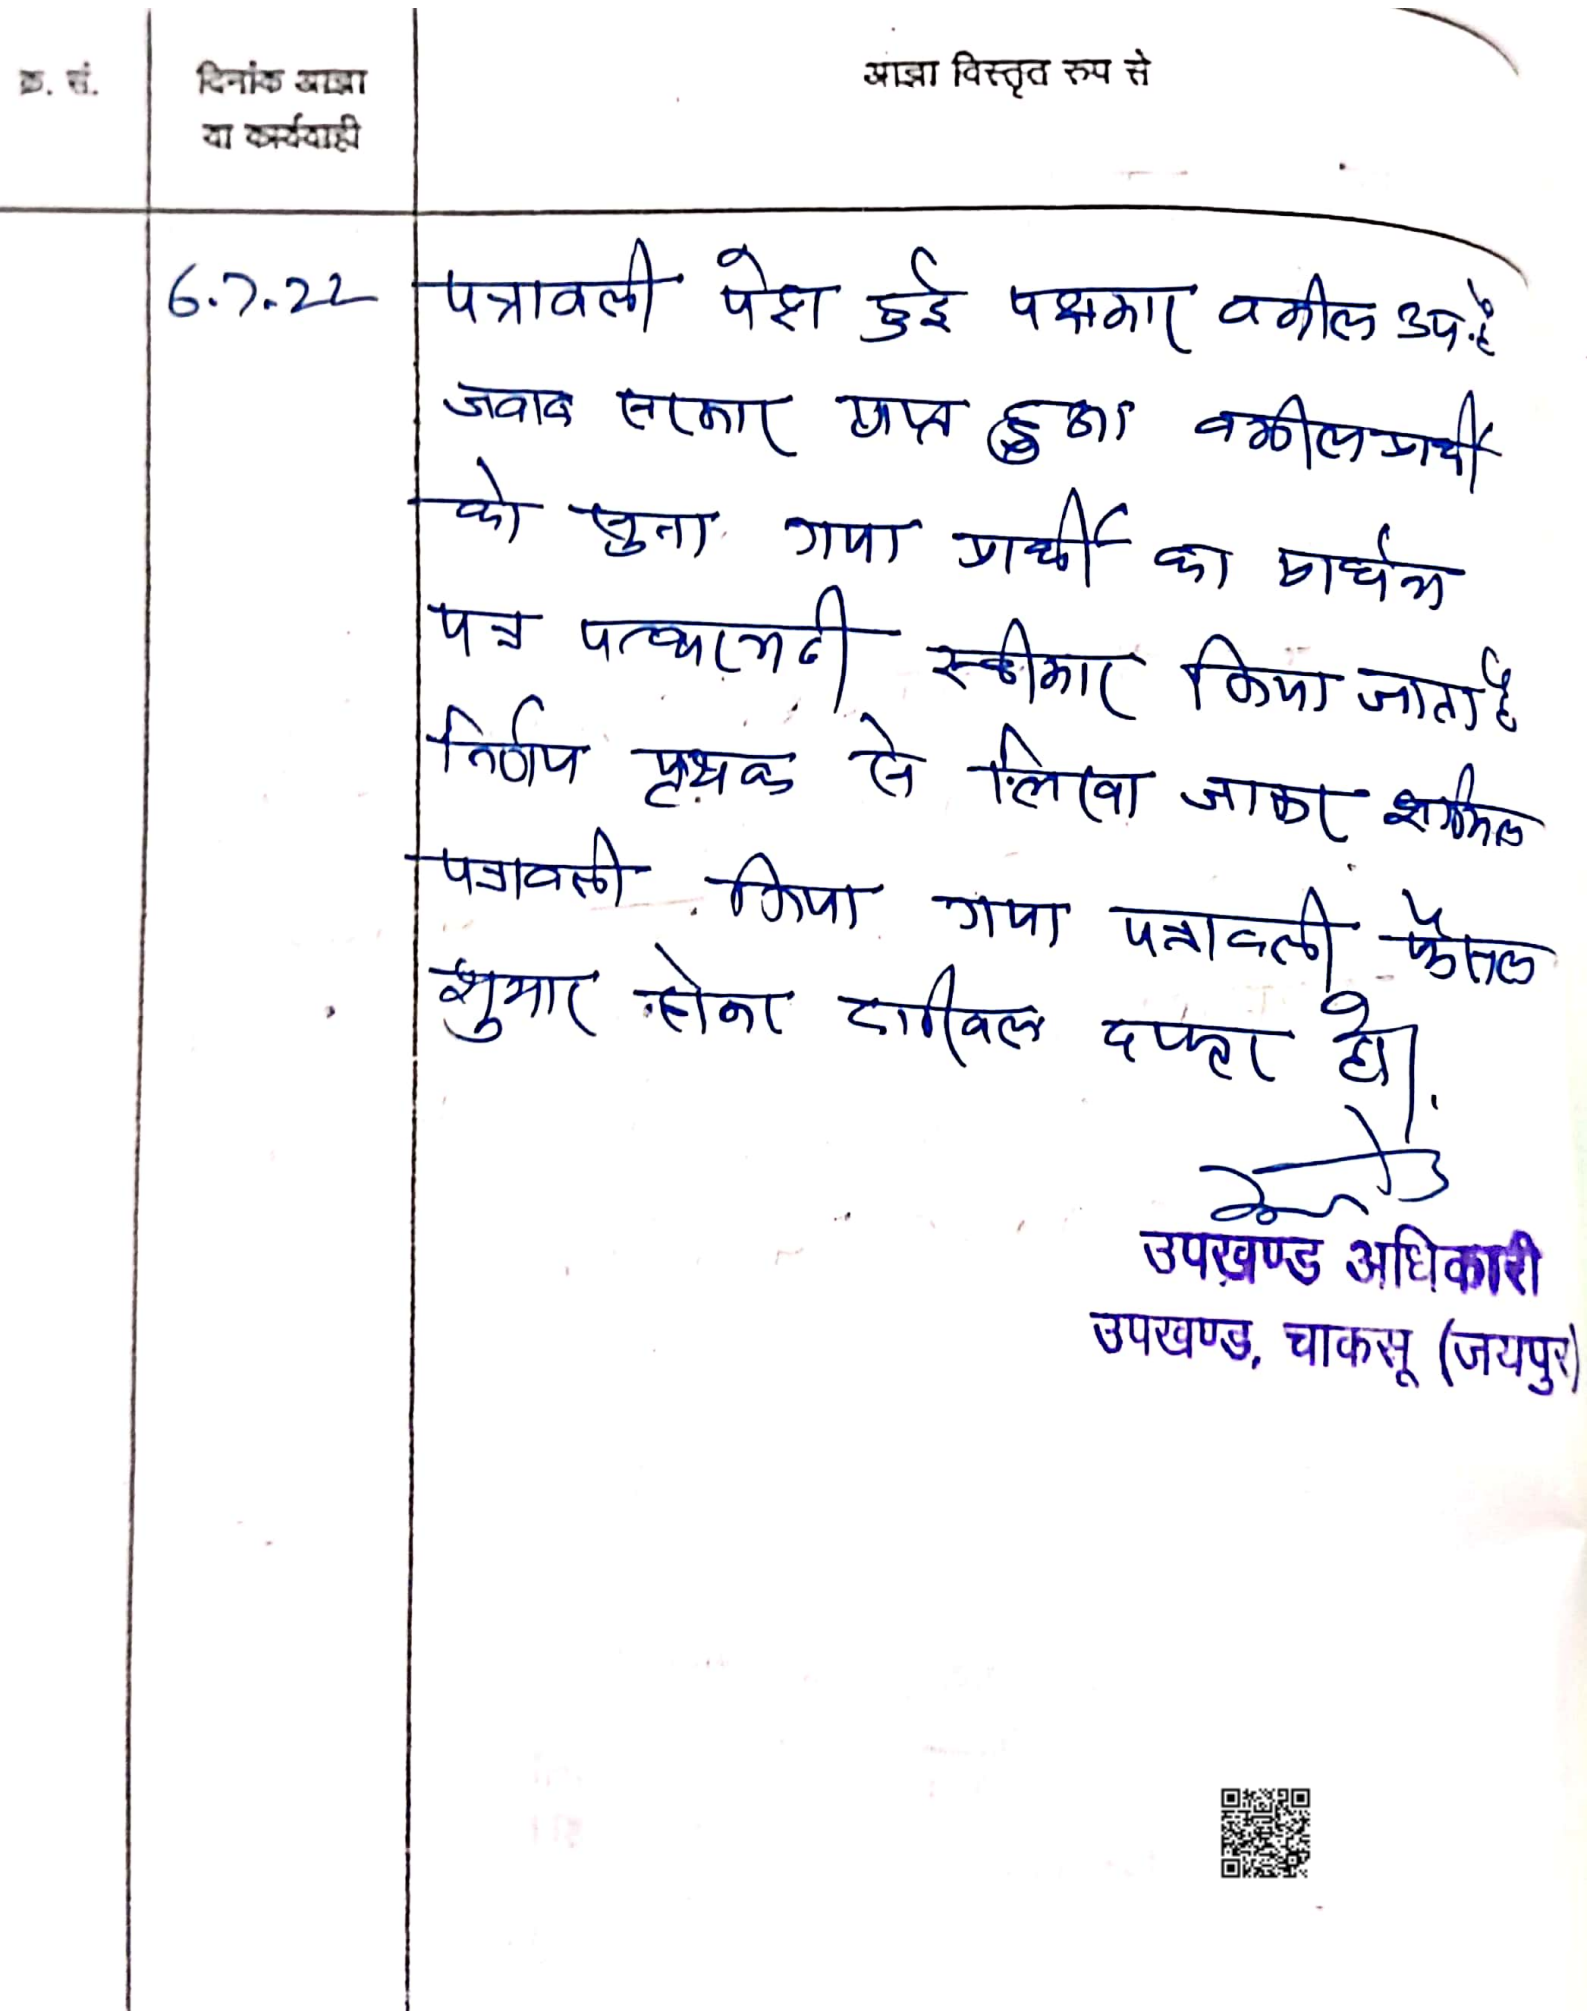 क्र. सं.
दिनांक आज्ञा
या कार्यवाही
आज्ञा विस्तृत रुप से
6.7.22
पत्रावली पेश हुई पक्षकार वकील उप. है
जवाब सरकार प्राप्त हुआ वकील प्रार्थी
को सुना गया प्रार्थी का प्रार्थना
पत्र पत्थरगढी स्वीकार किया जाता है
निर्णय पृथक से लिखा जाकर शामिल
पत्रावली किया गया पत्रावली फैसल
शुमार होकर दाखिल दफ्तर हो।
उपखण्ड अधिकारी
उपखण्ड, चाकसू (जयपुर)